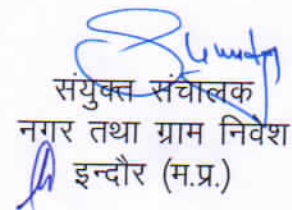 संयुक्त संचालक
नगर तथा ग्राम निवेश
इन्दौर (म.प्र.)